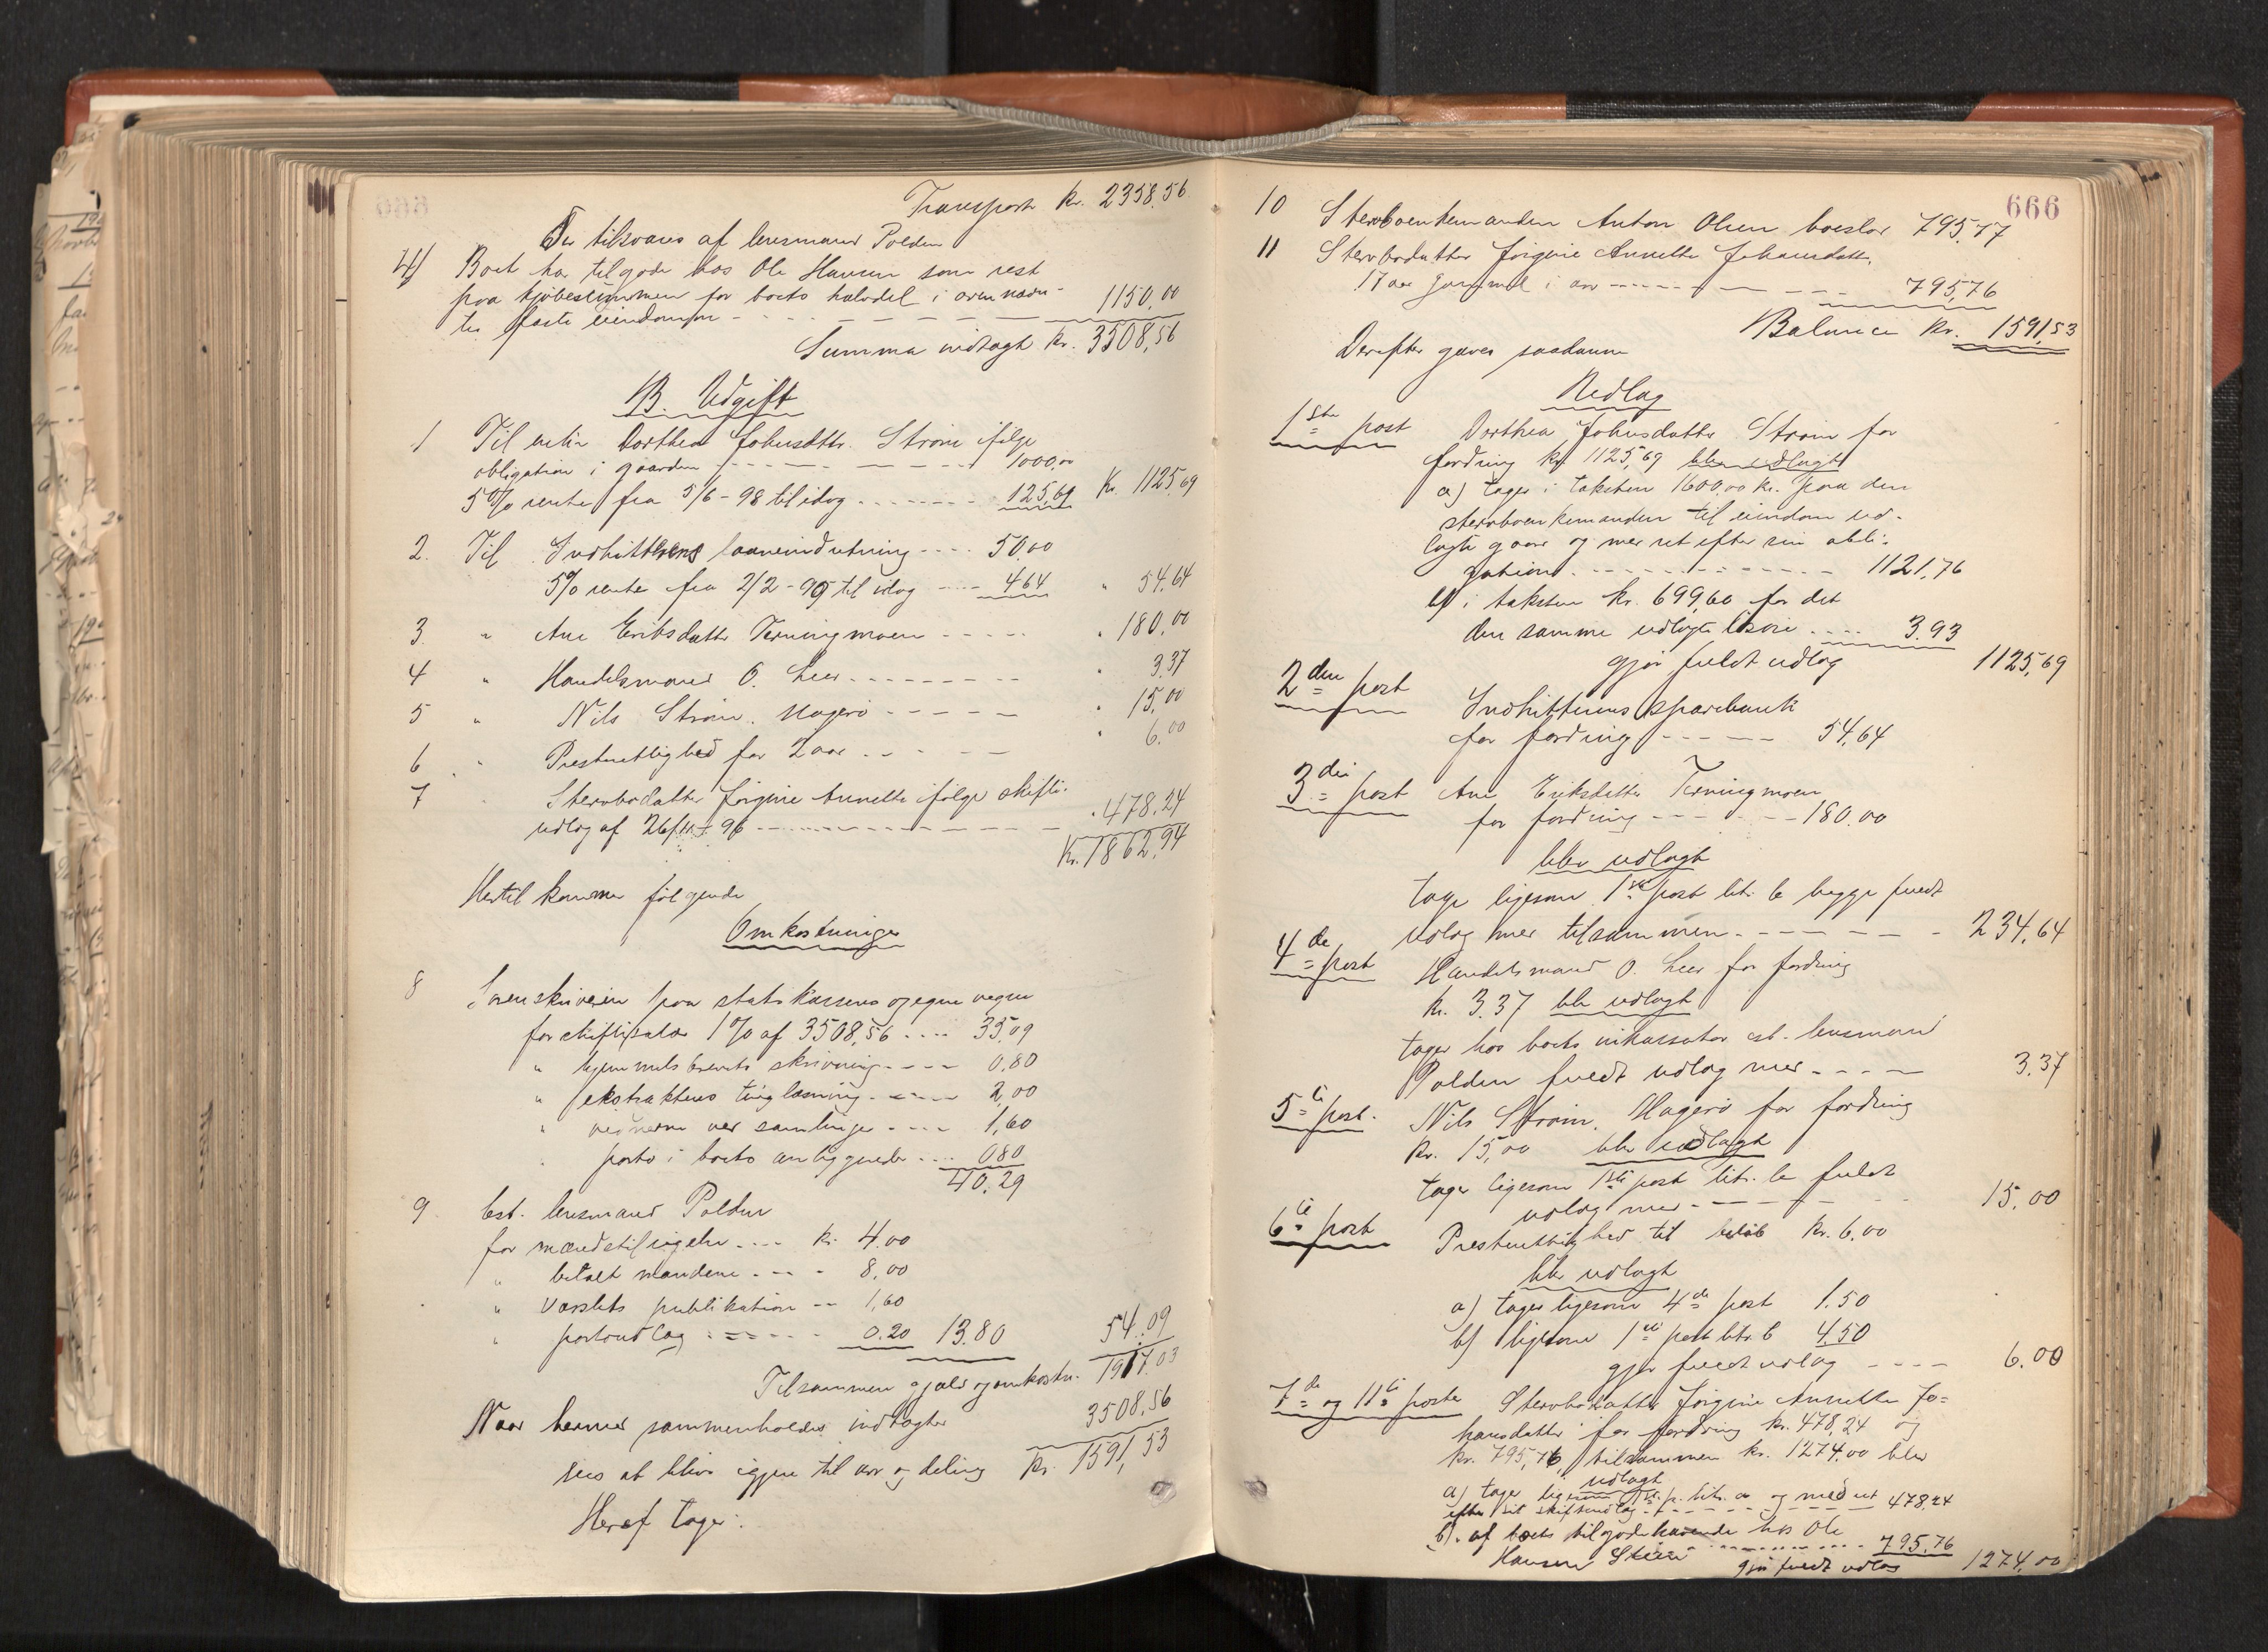 Transport kr. 2358,56
Der tilsvares af lensmand Polden
4) Boet har tilgode hos Ole Hansen som rest
paa kjøbesummen for boets halvdel i ovennævn-
te faste eiendom - - - 1150,00
Summa indtægt kr. 3508,56
B. Udgift
1 Til enke Dorthea Johnsdatter Strøm ifølge
obligation i gaarden - - - 1000,00
5% rente fra 5/6-98 til idag - - - 125,69 Kr. 1125,69
2. Til Indhitterens laaneindretning - - - 50,00
5% rente fra 2/2-99 til idag - - - 4,64 " 54,64
3. " Ane Eriksdatter Terningmoen - - - " 180,00
4 " Handelsmand O. Lies - - - " 3,37
5 " Nils Strøm. Hagerø - - - " 15,00
6 " Prestenttighed for 2 aar - - - " 6,00
7 " Stervbodatter Jørgine Annette ifølge skifte-
udlæg af 26/11-96 - - - " 478,24
Kr. 1862,94
Hertil kommer følgende
Omkostninger
8 Sorenskriveren paa statskassens og egne vegne
for skiftesalær 1% af 3508,56 .... 35,09
" hjemmelsbrevets skrivning - - - 0,80
" ekstraktens tinglæsning - - - 2,00
" vidnerne ved samlinger - - - 1,60
" porto i boets anliggender - - - 0,80
40,29
9 Cst. lensmand Polden
for mændstilsigelse .... kr. 4,00
" betalt mændene - - - 8,00
" varslets publikation - - 1,60
" portoudlæg - - - 0,20 13,80 54,09
Tilsammen gjæld og omkostn. 1917,03
Naar hermed sammenholdes indtægten 3508,56
sees at blive igjen til arv og deling Kr. 1591,53
Heraf tager:
666
10 Stervboenkemanden Anton Olsen boeslod 795,77
11 Stervbodatter Jørgine Annette Johansdatter,
17 aar gammel i arv - - - 795,76
Balance kr. 1591,53
Derefter gjøres saadanne
Udlæg
1ste post Dorthea Johnsdatter Strøm for
fordring kr. 1125,69 blev udlagt
a) tages i taksten 1600,00 kr. paa den
stervboenkemanden til eiendom ud-
lagte gaard og med ret efter sin obli-
gation - - - 1121,76
b) i taksten kr. 699,60 for det
den samme udlagte løsøre .... 3,93
gjør fuldt udlæg 1125,69
2den post Indhitterens sparebank
for fordring - - - 54,64
3die post Ane Eriksdatter Terningmoen
for fordring - - - 180,00
blev udlagt
tages ligesom 1ste post litr. b begge fuldt
udlæg med tilsammen - - - 234,64
4de post Handelsmand O. Lies for fordring
kr. 3,37 blev udlagt
tages hos boets inkassator cst. lensmand
Polden fuldt udlæg med - - - 3,37
5te post. Nils Strøm, Hagerø for fordring
kr. 15,00 blev udlagt
tages ligesom 1ste post litr. b fuldt
udlæg med - - - 15,00
6te post Prestenttighed til beløb kr. 6,00
blev udlagt
a) tages ligesom 4de post 1,50
b) ligesom 1ste post litr. b 4,50
gjør fuldt udlæg - - - 6,00
7de og 11te poster Stervbodatter Jørgine Annette Jo-
hansdatter for fordring kr. 478,24 og
kr. 795,76, tilsammen kr. 1274,00 blev
udlagt
a) tages ligesom 1ste p. litr. a og med ret
efter sit skifteudlæg - - - 478,24
b). af boets tilgodehavende hos Ole
Hansen - - - 795,76
gjør fuldt udlæg 1274,00